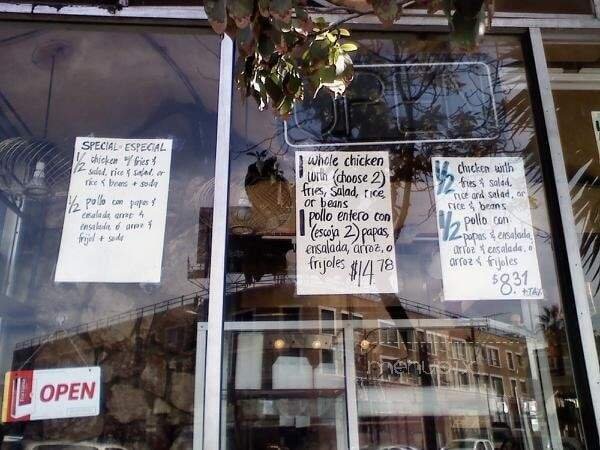 SPECIAL ESPECIAL
1/2 chicken w/ fries &
salad, rice & salad, or
rice & beans + soda
1/2 pollo con papas &
ensalada, arroz &
ensalada, o arroz &
frijol + soda
1 whole chicken
with (choose 2)
fries, salad, rice
or beans
1 pollo entero con
(escoja 2) papas,
ensalada, arroz, o
frijoles $14.78
1/2 chicken with
fries & salad,
rice and salad, or
rice & beans
1/2 pollo con
papas & ensalada,
arroz & ensalada, o
arroz & frijoles
$8.31
+TAX
OPEN
OPEN
menupix